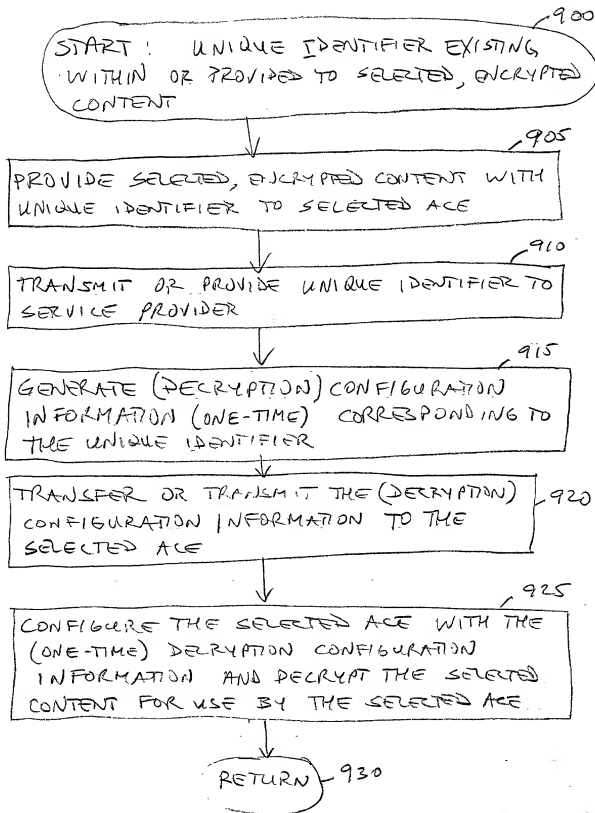 900
START: UNIQUE IDENTIFIER EXISTING
WITHIN OR PROVIDED TO SELECTED, ENCRYPTED
CONTENT
905
PROVIDE SELECTED, ENCRYPTED CONTENT WITH
UNIQUE IDENTIFIER TO SELECTED ACE
910
TRANSMIT OR PROVIDE UNIQUE IDENTIFIER TO
SERVICE PROVIDER
915
GENERATE (DECRYPTION) CONFIGURATION
INFORMATION (ONE-TIME) CORRESPONDING TO
THE UNIQUE IDENTIFIER
TRANSFER OR TRANSMIT THE (DECRYPTION)
CONFIGURATION INFORMATION TO THE
SELECTED ACE
920
925
CONFIGURE THE SELECTED ACE WITH THE
(ONE-TIME) DECRYPTION CONFIGURATION
INFORMATION AND DECRYPT THE SELECTED
CONTENT FOR USE BY THE SELECTED ACE.
RETURN
930